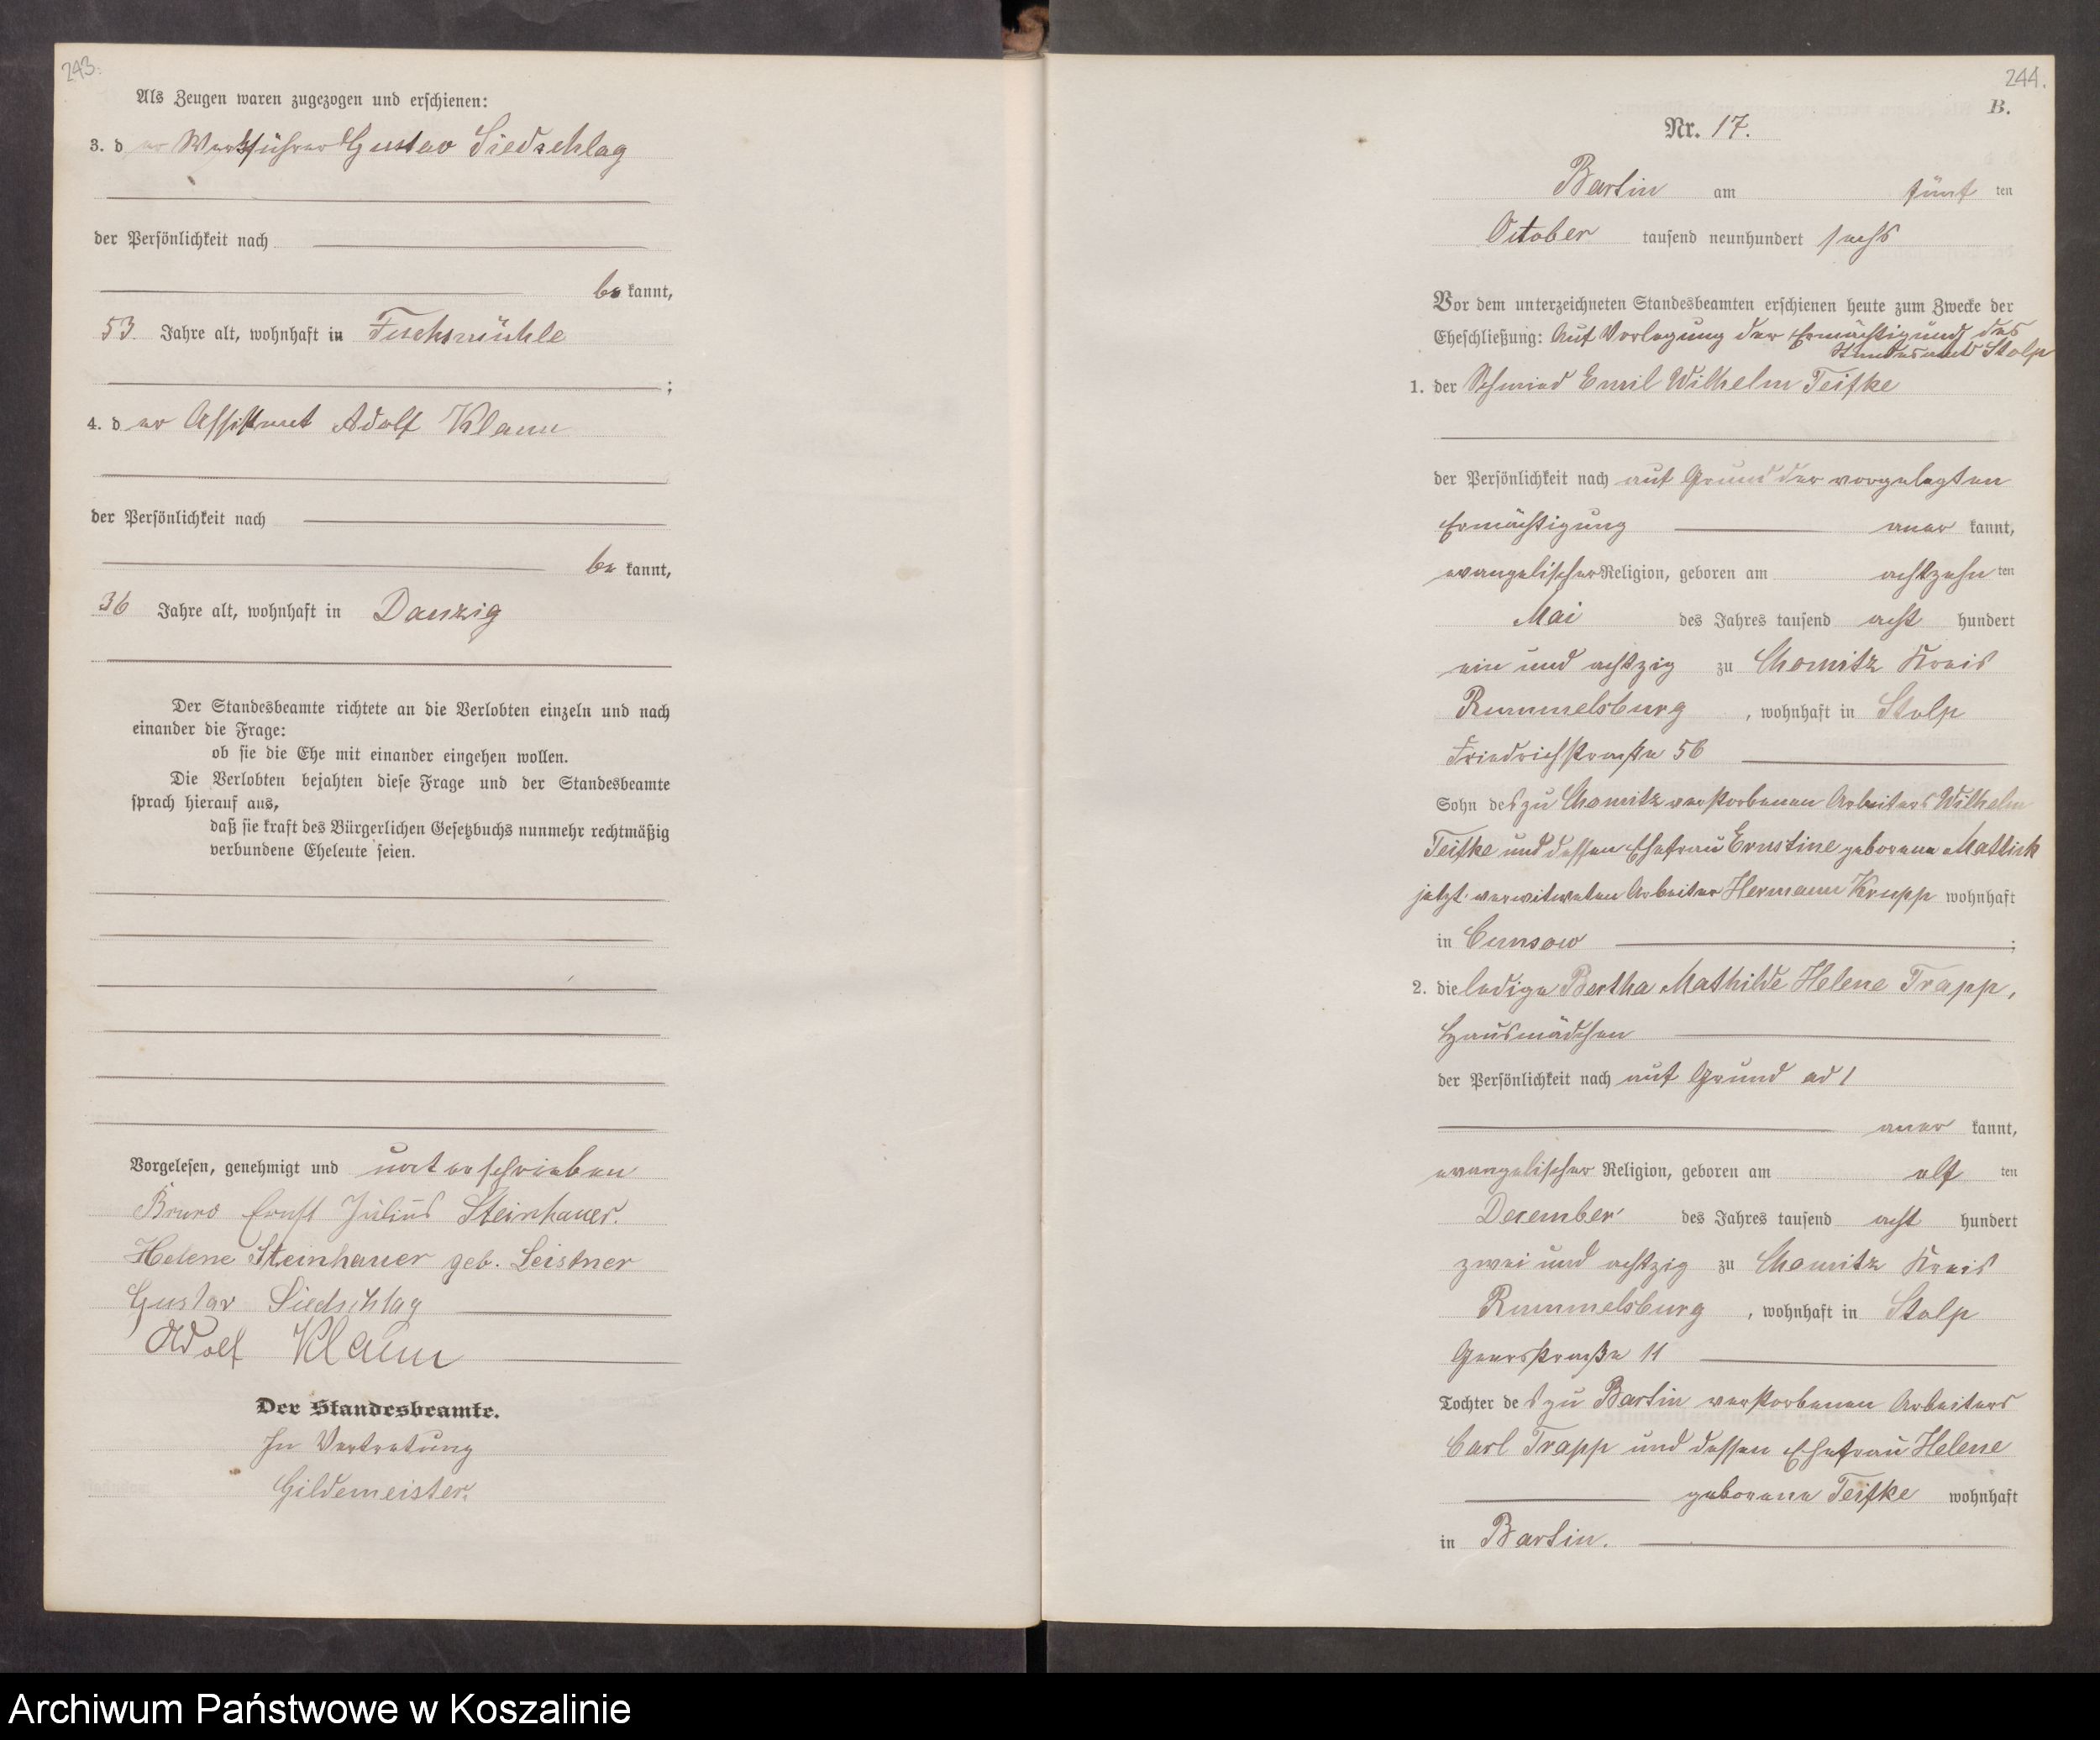 243.
Als Zeugen waren zugezogen und erschienen:
3. der Werkführer Gustav Siedschlag
der Persönlichkeit nach
be kannt,
53 Jahre alt, wohnhaft in Fuchsmühle
;
4. der Assistent Adolf Klann
der Persönlichkeit nach
be kannt,
36 Jahre alt, wohnhaft in Danzig
Der Standesbeamte richtete an die Verlobten einzeln und nach
einander die Frage:
ob sie die Ehe mit einander eingehen wollen.
Die Verlobten bejahten diese Frage und der Standesbeamte
sprach hierauf aus,
daß sie kraft des Bürgerlichen Gesetzbuchs nunmehr rechtmäßig
verbundene Eheleute seien.
Vorgelesen, genehmigt und unterschrieben
Bruno Ernst Julius Steinhauer.
Helene Steinhauer geb. Leistner
Gustav Siedschlag
Adolf Klann
Der Standesbeamte.
In Vertretung
Gildemeister.
244.
B.
Nr. 17.
Bartin am fünf ten
October tausend neunhundert sechs
Vor dem unterzeichneten Standesbeamten erschienen heute zum Zwecke der
Eheschließung: Auf Vorlegung der Ermächtigung des
Standesamts Stolp
1. der Schmied Emil Wilhelm Teifke
der Persönlichkeit nach auf Grund der vorgelegten
Ermächtigung aner kannt,
evangelischer Religion, geboren am achtzehn ten
Mai des Jahres tausend acht hundert
ein und achtzig zu Chomitz Kreis
Rummelsburg , wohnhaft in Stolp
Friedrichstraße 56
Sohn des zu Chomitz verstorbenen Arbeiters Wilhelm
Teifke und dessen Ehefrau Ernstine geborene Mattick
jetzt verwitweten Arbeiter Hermann Krupp wohnhaft
in Cunsow ;
2. die ledige Bertha Mathilde Helene Trapp,
Hausmädchen
der Persönlichkeit nach auf Grund ad 1
aner kannt,
evangelischer Religion, geboren am elf ten
December des Jahres tausend acht hundert
zwei und achtzig zu Chomitz Kreis
Rummelsburg , wohnhaft in Stolp
Geersstraße 11
Tochter des zu Bartin verstorbenen Arbeiters
Carl Trapp und dessen Ehefrau Helene
geborene Teifke wohnhaft
in Bartin.
Archiwum Państwowe w Koszalinie